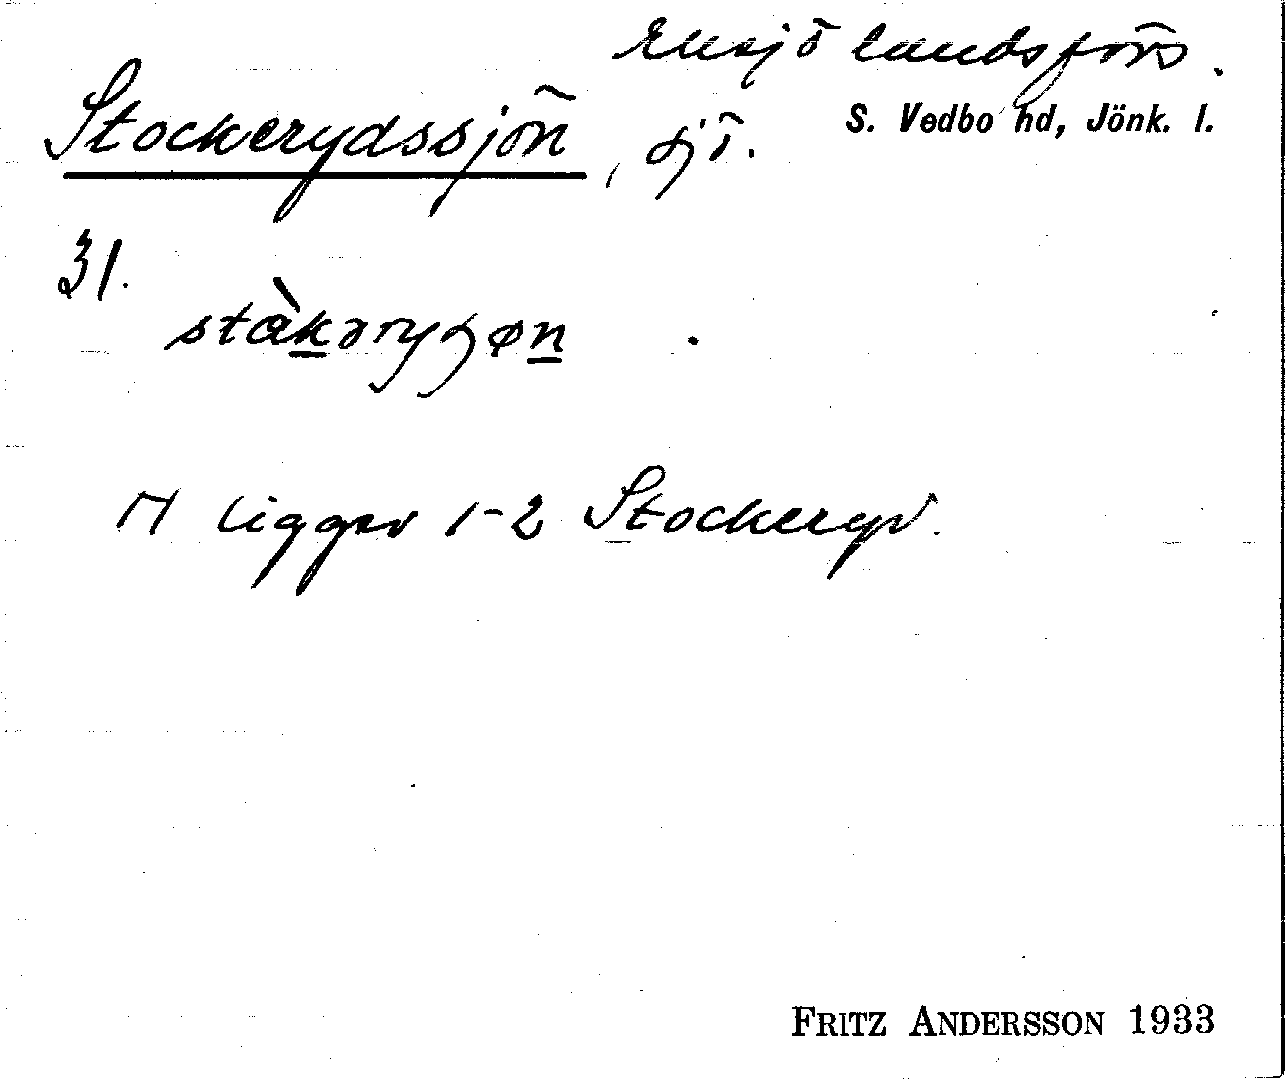 Eksjö landsförs.
Stockerydssjön, sjö. S. Vedbo hd, Jönk. l.
31.
ligger 1-2 Stockeryd.
FRITZ ANDERSSON 1933